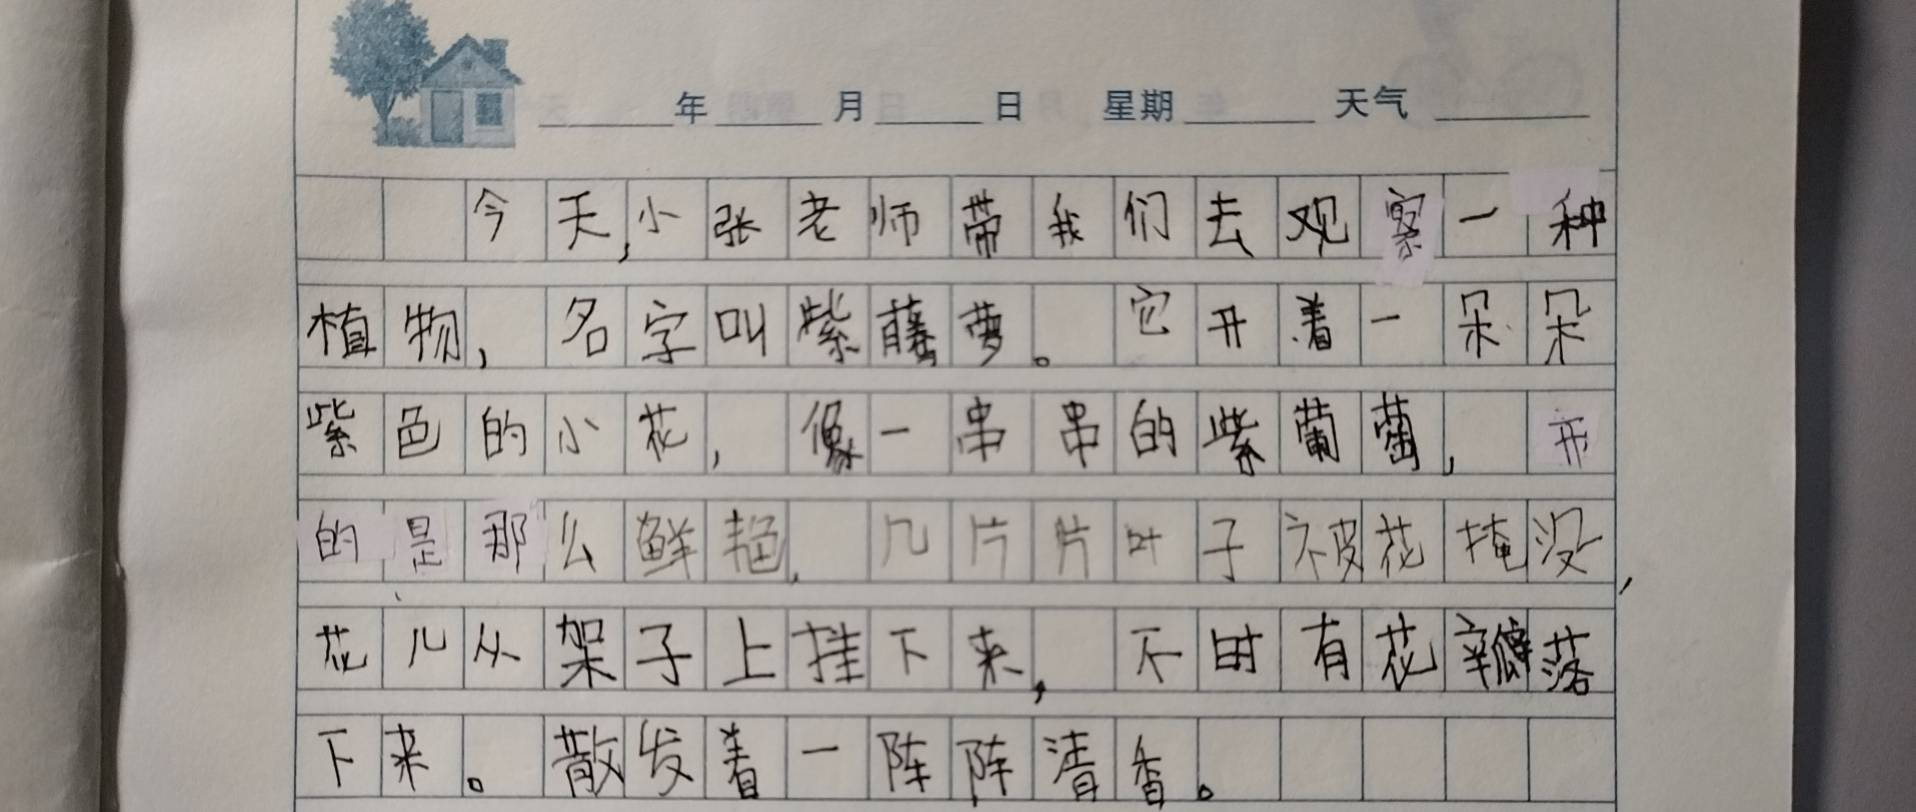 年 月 日 星期 天气
今天,小张老师带我们去观察一种
植物,名字叫紫藤萝。它开着一朵朵
紫色的小花,像一串串的紫葡萄,开
的是那么鲜艳,几片片叶子被花掩没,
花儿从架子上挂下来,不时有花瓣落
下来。散发着一阵阵清香。